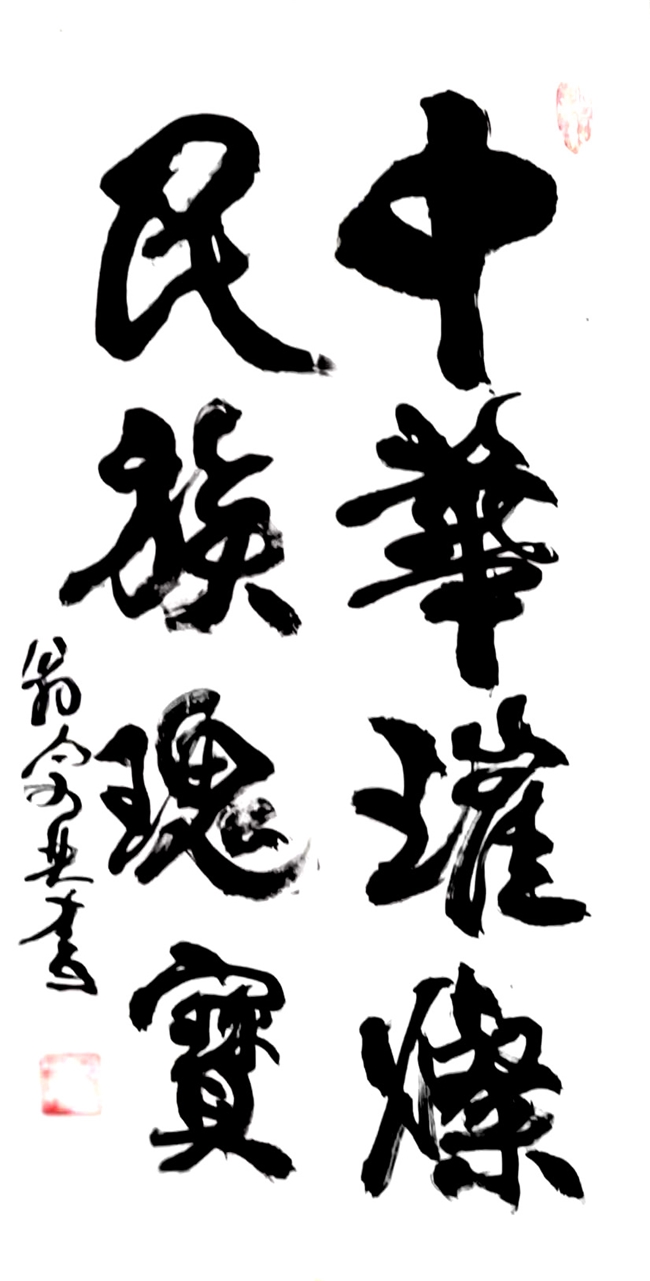 中華璀燦
民族瑰寶
翁 書